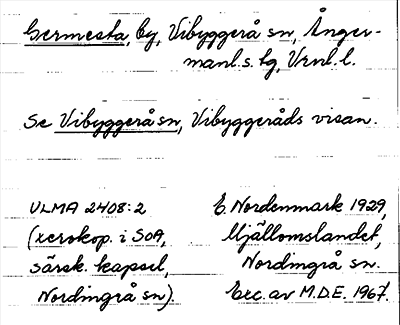 Germesta, by, Vibyggerå sn, Ånger-
manl.s. tg, Vrnl. l.
Se Vibyggerå sn, Vibyggeråds visan.
ULMA 2408:2
(xerokop. i SOA,
särsk. kapsel,
Nordingrå sn).
E. Nordenmark 1929,
Mjällomslandet,
Nordingrå sn.
Exc. av M.D.E. 1967.